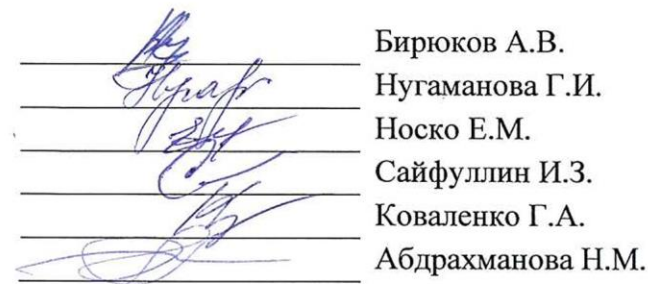 Бирюков А.В.
Нугаманова Г.И.
Носко Е.М.
Сайфуллин И.З.
Коваленко Г.А.
Абдрахманова Н.М.